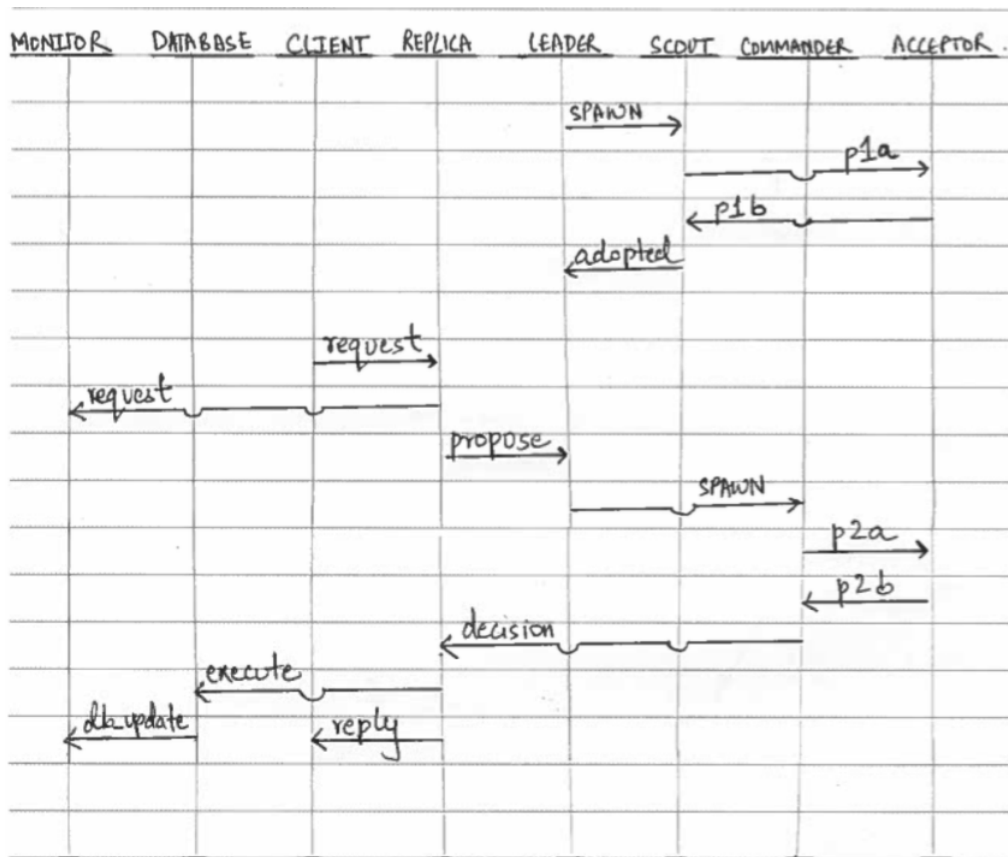 MONITOR DATABASE CLIENT REPLICA LEADER SCOUT COMMANDER ACCEPTOR.
SPAWN
p1a
p1b
adopted
request
request
propose
SPAWN
p2a
p2b
decision
execute
db_update reply